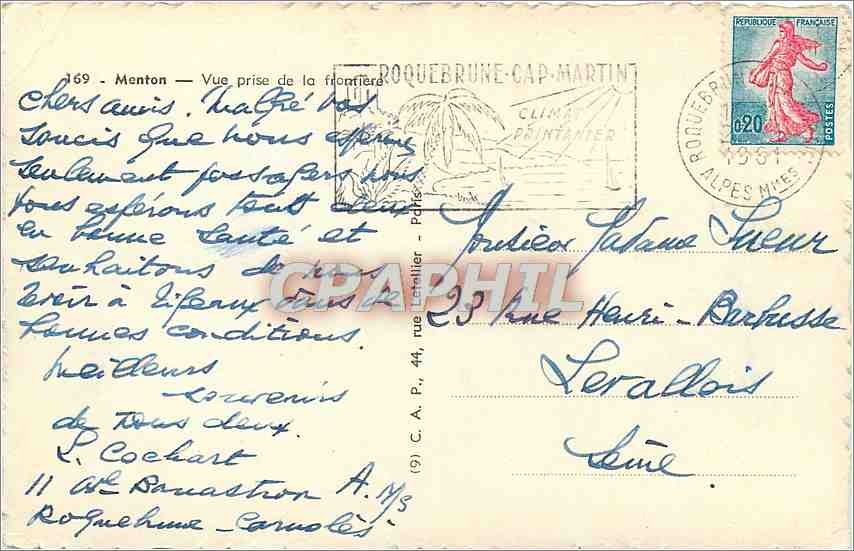 169 - Menton — Vue prise de la frontière
ROQUEBRUNE-CAP-MARTIN
CLIMAT
PRINTANIER
REPUBLIQUE FRANÇAISE
0,20
POSTES
ROQUEBRUNE
1961
ALPES MMES
chers amis. Malgré vos
soucis que nous espérons
seulement passagers nous
vous espérons tout deux
en bonne santé et
souhaitons de vous
revoir à dans de
bonnes conditions.
Meilleurs
souvenirs
de tous deux.
L. Cochart
11 A. M/s
Roquebrune - Carnolès
CPAPHIL
(9) C. A. P., 44, rue Letellier - Paris
Monsieur Madame Sueur
23 Rue Henri-Barbusse
Levallois
Seine